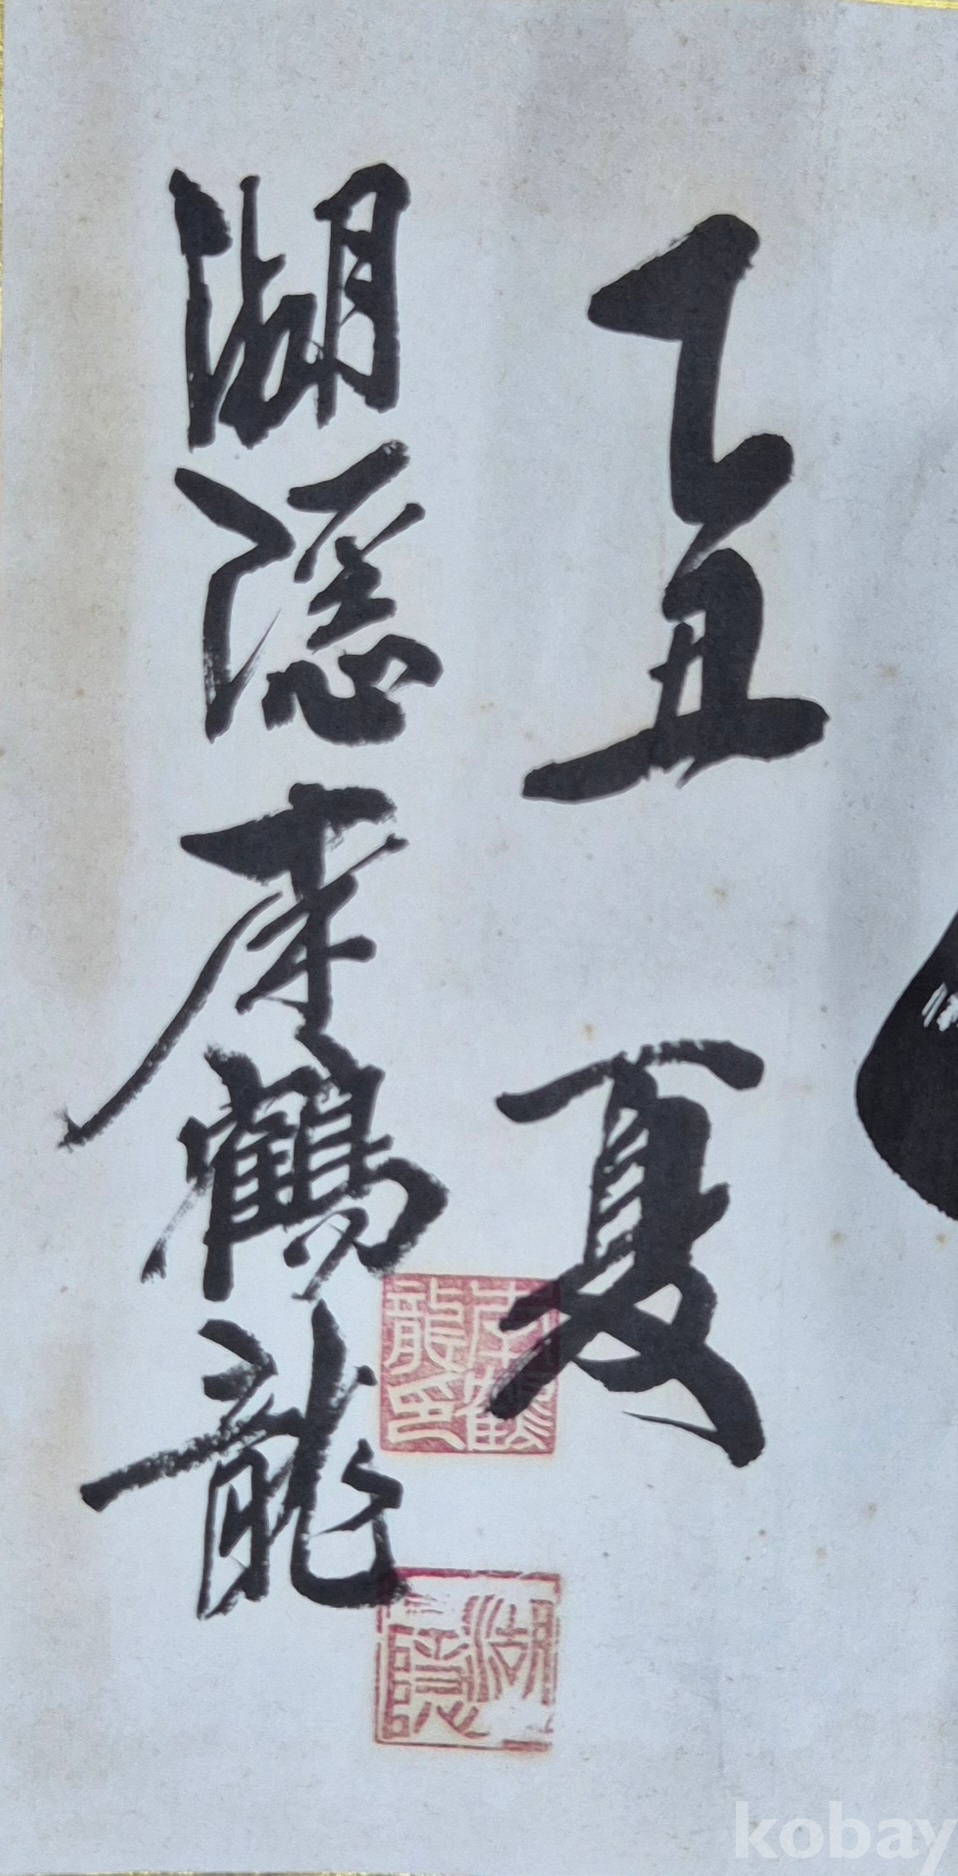 乙丑 夏
湖隱 南鶴龍
南鶴龍印
湖隱
kobay